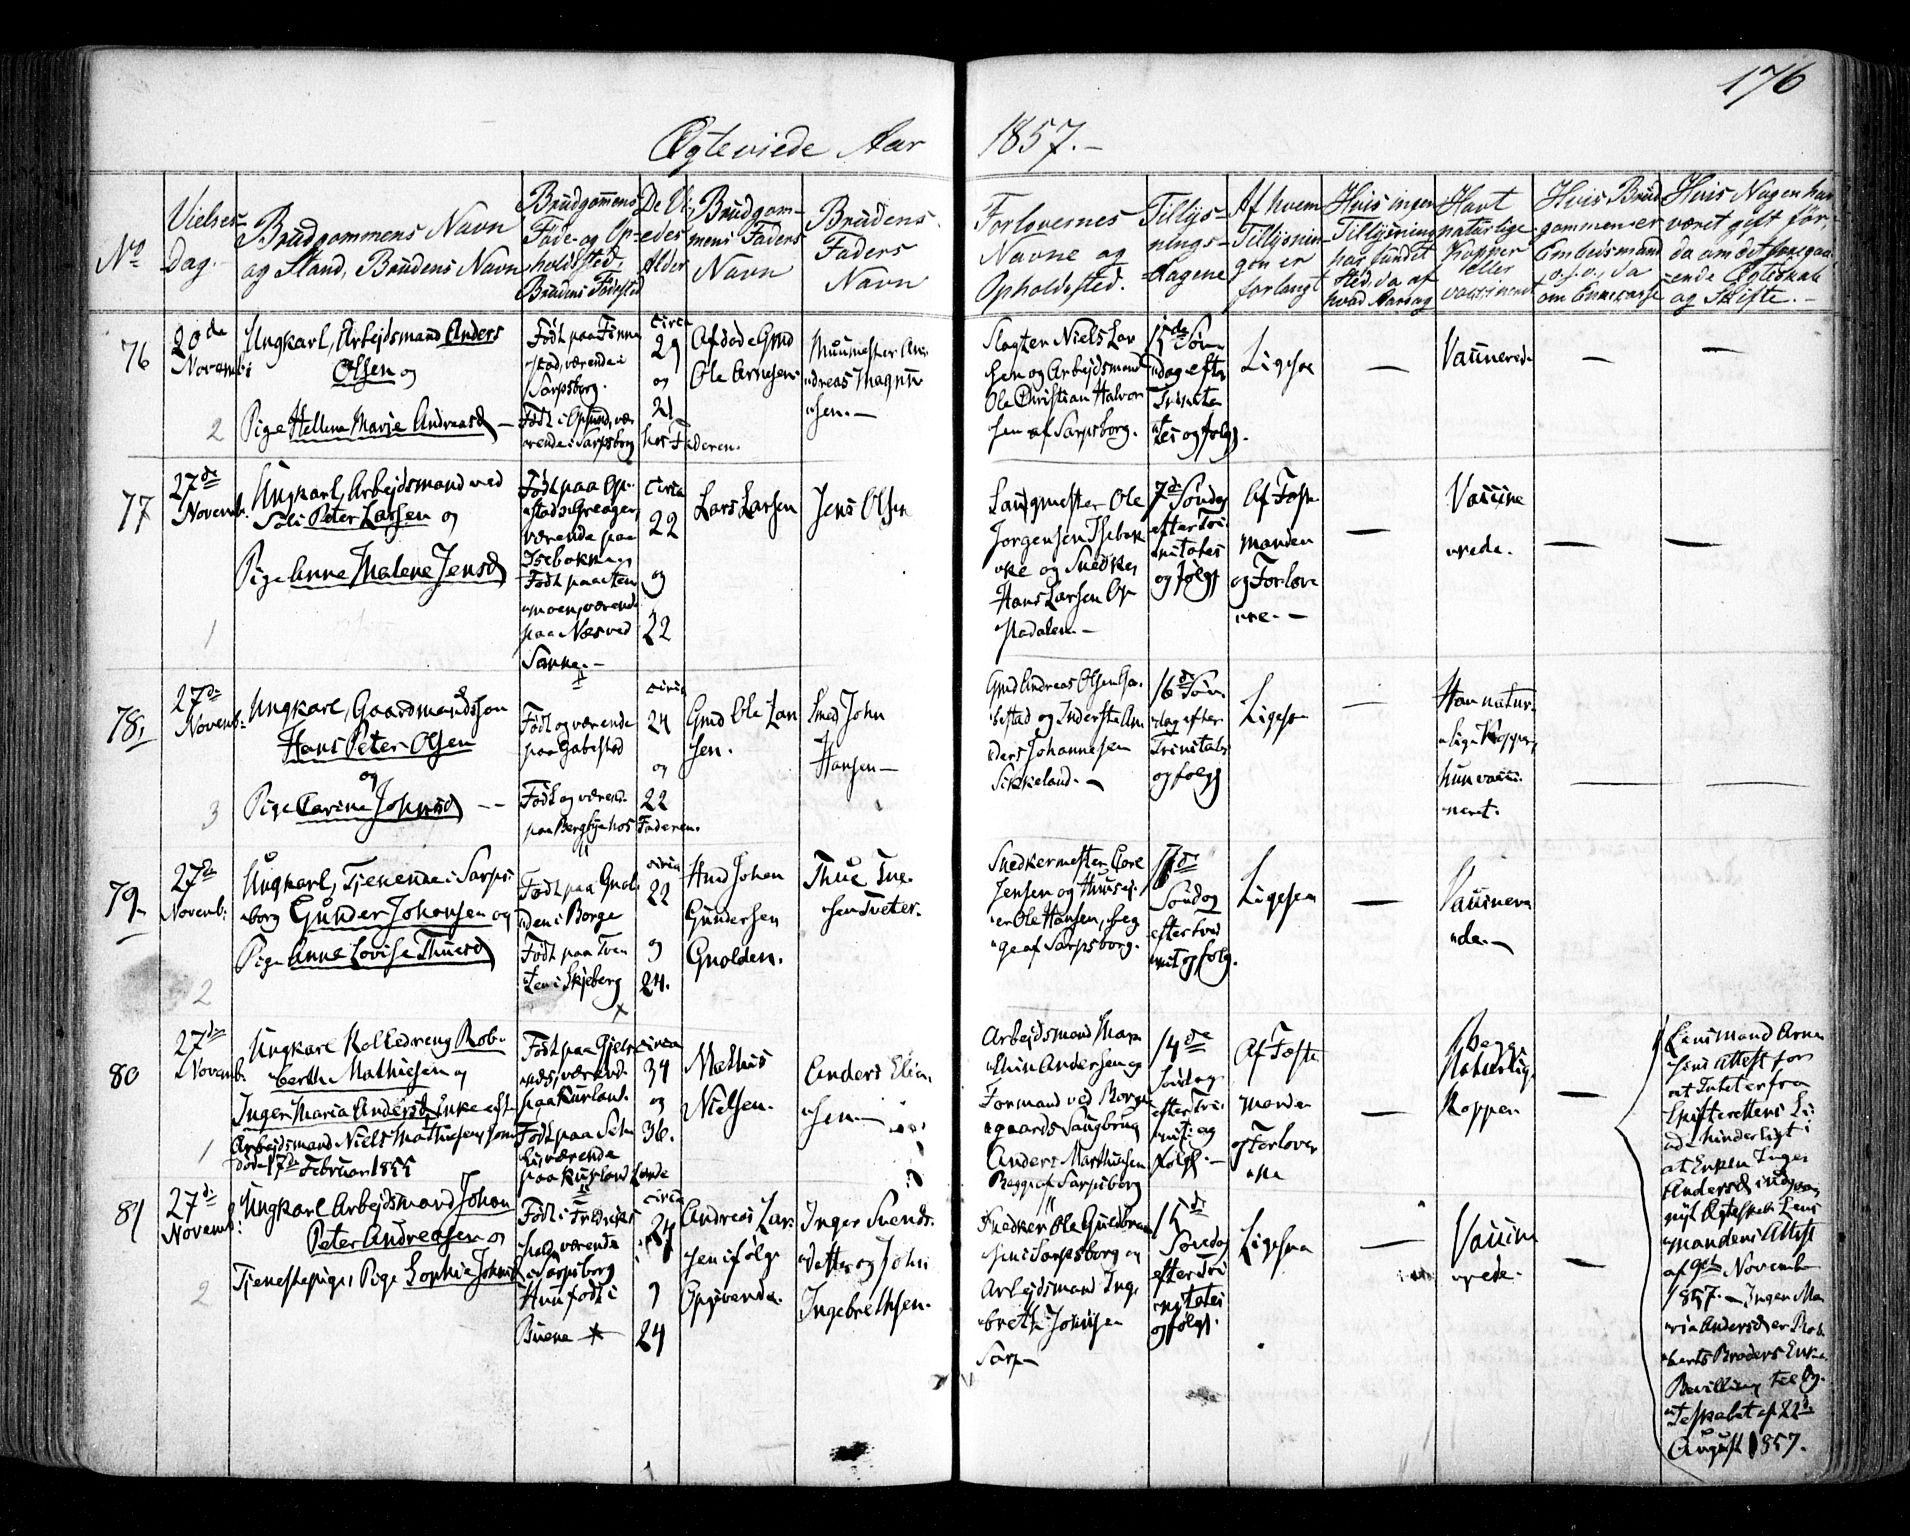 176
Ægteviede Aar 1857.-
No
Vielses
Dag.-
Brudgommens Navn
og Stand, Brudens Navn
Brudgommens
Føde- og Op-
holdssted
Brudens Fødested
De Vi-
edes
Alder
Brudgom-
mens Faders
Navn
Brudens
Faders
Navn
Forlovernes
Navne og
Opholdssted.
Tillys-
nings-
dagene
Af hvem
Tillysnin-
gen er
forlangt
Hvis ingen
Tillysning
har fundet
Sted, da af
hvad Aarsag
Havt
naturlige
Kopper
eller
vaccineret
Hvis Brud
gommen er
Embedsmand
o.s.v., da
om Enkecasse
Hvis Nogen har
været gift før,
da om det foregaa-
ende Ægteskab
og Skifte.-
76
20de
Novemb:
2
Ungkarl, Arbejdsmand Anders
Olsen og
Pige Hellene Marie Andreasd -
Født paa Finne
stad, værende i
Sarpsborg.
værende i Sarpsborg
hos Faderen.
circa
29
og
21
Afdøde Gmd
Ole Arnesen
Muurmester An-
dreas Magnu
sen.-
Slagter Niels Lar
sen og Arbejdsmand
Ole Christian Halvor
sen af Sarpsborg.
15de Søn
dag efter
Trinita
tis og følg.
Ligesaa
-
Vaccinerede
-
-
77
27de
Novemb.
1
Ungkarl, Arbejdsmand ved
Peter Larsen og
Pige Anne Malene Jensd
Født paa Op-
stad i Greager,
værende paa
Isebakke og
Født paa Sten
moen, værende
paa Næs ved
Sanne.-
circa
22
og
22
Lars Larsen
Jens Olsen
Laugmester Ole
Jørgensen Isebak
ke og Snedker
Hans Larsen Op
stadalen.-
7de Søndag
efter Tri
nitatis
og følg
Af Faste
manden
og Forlove
rne.-
-
Vaccine
rede.
-
-
78,
27de
Novemb:
3
Ungkarl, Gaardmandssøn
Hans Peter Olsen
og
Pige Carine Johnsd - -
Født og værende
paa Gabestad
Født og værende
paa Bergbye hos Faderen.
circa
24
og
22
Gmd Ole Lar
sen.
Smed John
Hansen -
Gmd Andreas Olsen Ga-
bestad og Inderste An
ders Johannesen
Sikkeland.-
16de Søn
dag efter
Trinitatis
og følg
Ligesaa
-
Han natur-
lige Kopper,
hun vacci
neret.
-
-
79.
27de
Novemb:
2
Ungkarl, Tjenende i Sarps-
borg Gunder Johansen og
Pige Anne Lovise Thuesd
Født paa Gnol
den i Borge
Født paa Tve
ten i Skjeberg
circa
22
og
24.
Hmd Johan
Gundersen
Gnolden.
Thue Tue-
sen Tveter.
Snedkermester Carl
Jensen og Huusej-
er Ole Hansen, beg
ge af Sarpsborg.
17de
Søndag
efter Tri
nit og følg.
Ligesaa
-
Vaccinere
de.-
80
27de
Novemb.
1
Ungkarl Kulledreng Rob-
berth Mathisen og
Inger Maria Andersd Enke eft.
Arbejdsmand Niels Mathiesen, som
døde 17de Februar 1855
paa Kurland.
Født paa
værende
paa Kurland
circa
34
og
36.
Mathis
Nielsen.
Anders Elia
sen -
Arbejdsmand Mar
thin Andersen og
Formand ved Borre
gaards Saugbrug
Anders Marthinsen
Begge af Sarpsborg
14de
Søndag
efter Tri
nit: og
følg.-
Af Faste
manden
og Forlover
ne
-
Begge
Naturlige
Kopper
-
Lensmand Arne
sens Attest for
at Intet er fra
Skifterettens Si
de hinderligt i
at Enken Inger
Andersd indgaar
nyt Ægteskab. Lens
mandens Attest
af 9de November
1857.- Inger Ma
ria Andersd er Rob
berts Broders Enke.
Bevilling til Æg-
teskabet af 22de
August 1857.
81
27de
Novemb:
2
Ungkarl Arbejdsmand Johan
Peter Andreasen og
Tjenestepige, Pige Sophie Johnsd
Født i Fredriks
hald, værende
i Sarpsborg
Hun født i
Buene
circa
24
og
24
Andreas Lar-
sen ifølge
Opgivende.
Inger Svends-
datter og John
Ingebrethsen.
Snedker Ole Gulbran
sen i Sarpsborg og
Arbejdsmand Inge
breth Johnsen
Sarp -
15de
Søndag
efter Tri
nitatis
og følg.
Ligesaa
-
Vaccine
rede.
-